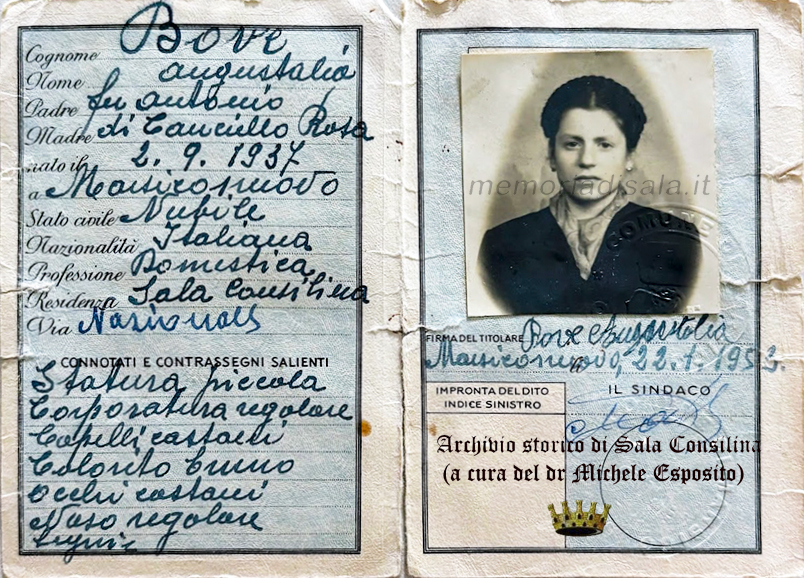 Cognome Bove
Nome Augustalia
Padre fu Antonio
Madre di Cancillo Rosa
nato il 2.9.1937
a Marsiconuovo
Stato civile Nubile
Nazionalità Italiana
Professione Domestica
Residenza Sala Consilina
Via Nazionale
CONNOTATI E CONTRASSEGNI SALIENTI
Statura piccola
Corporatura regolare
Capelli castani
Colorito bruno
Occhi castani
Naso regolare
memoriadisala.it
COMUNE
FIRMA DEL TITOLARE Bove Augustalia
Marsiconuovo, 22.1.1953.
IMPRONTA DEL DITO
INDICE SINISTRO
IL SINDACO
Archivio storico di Sala Consilina
(a cura del dr Michele Esposito)